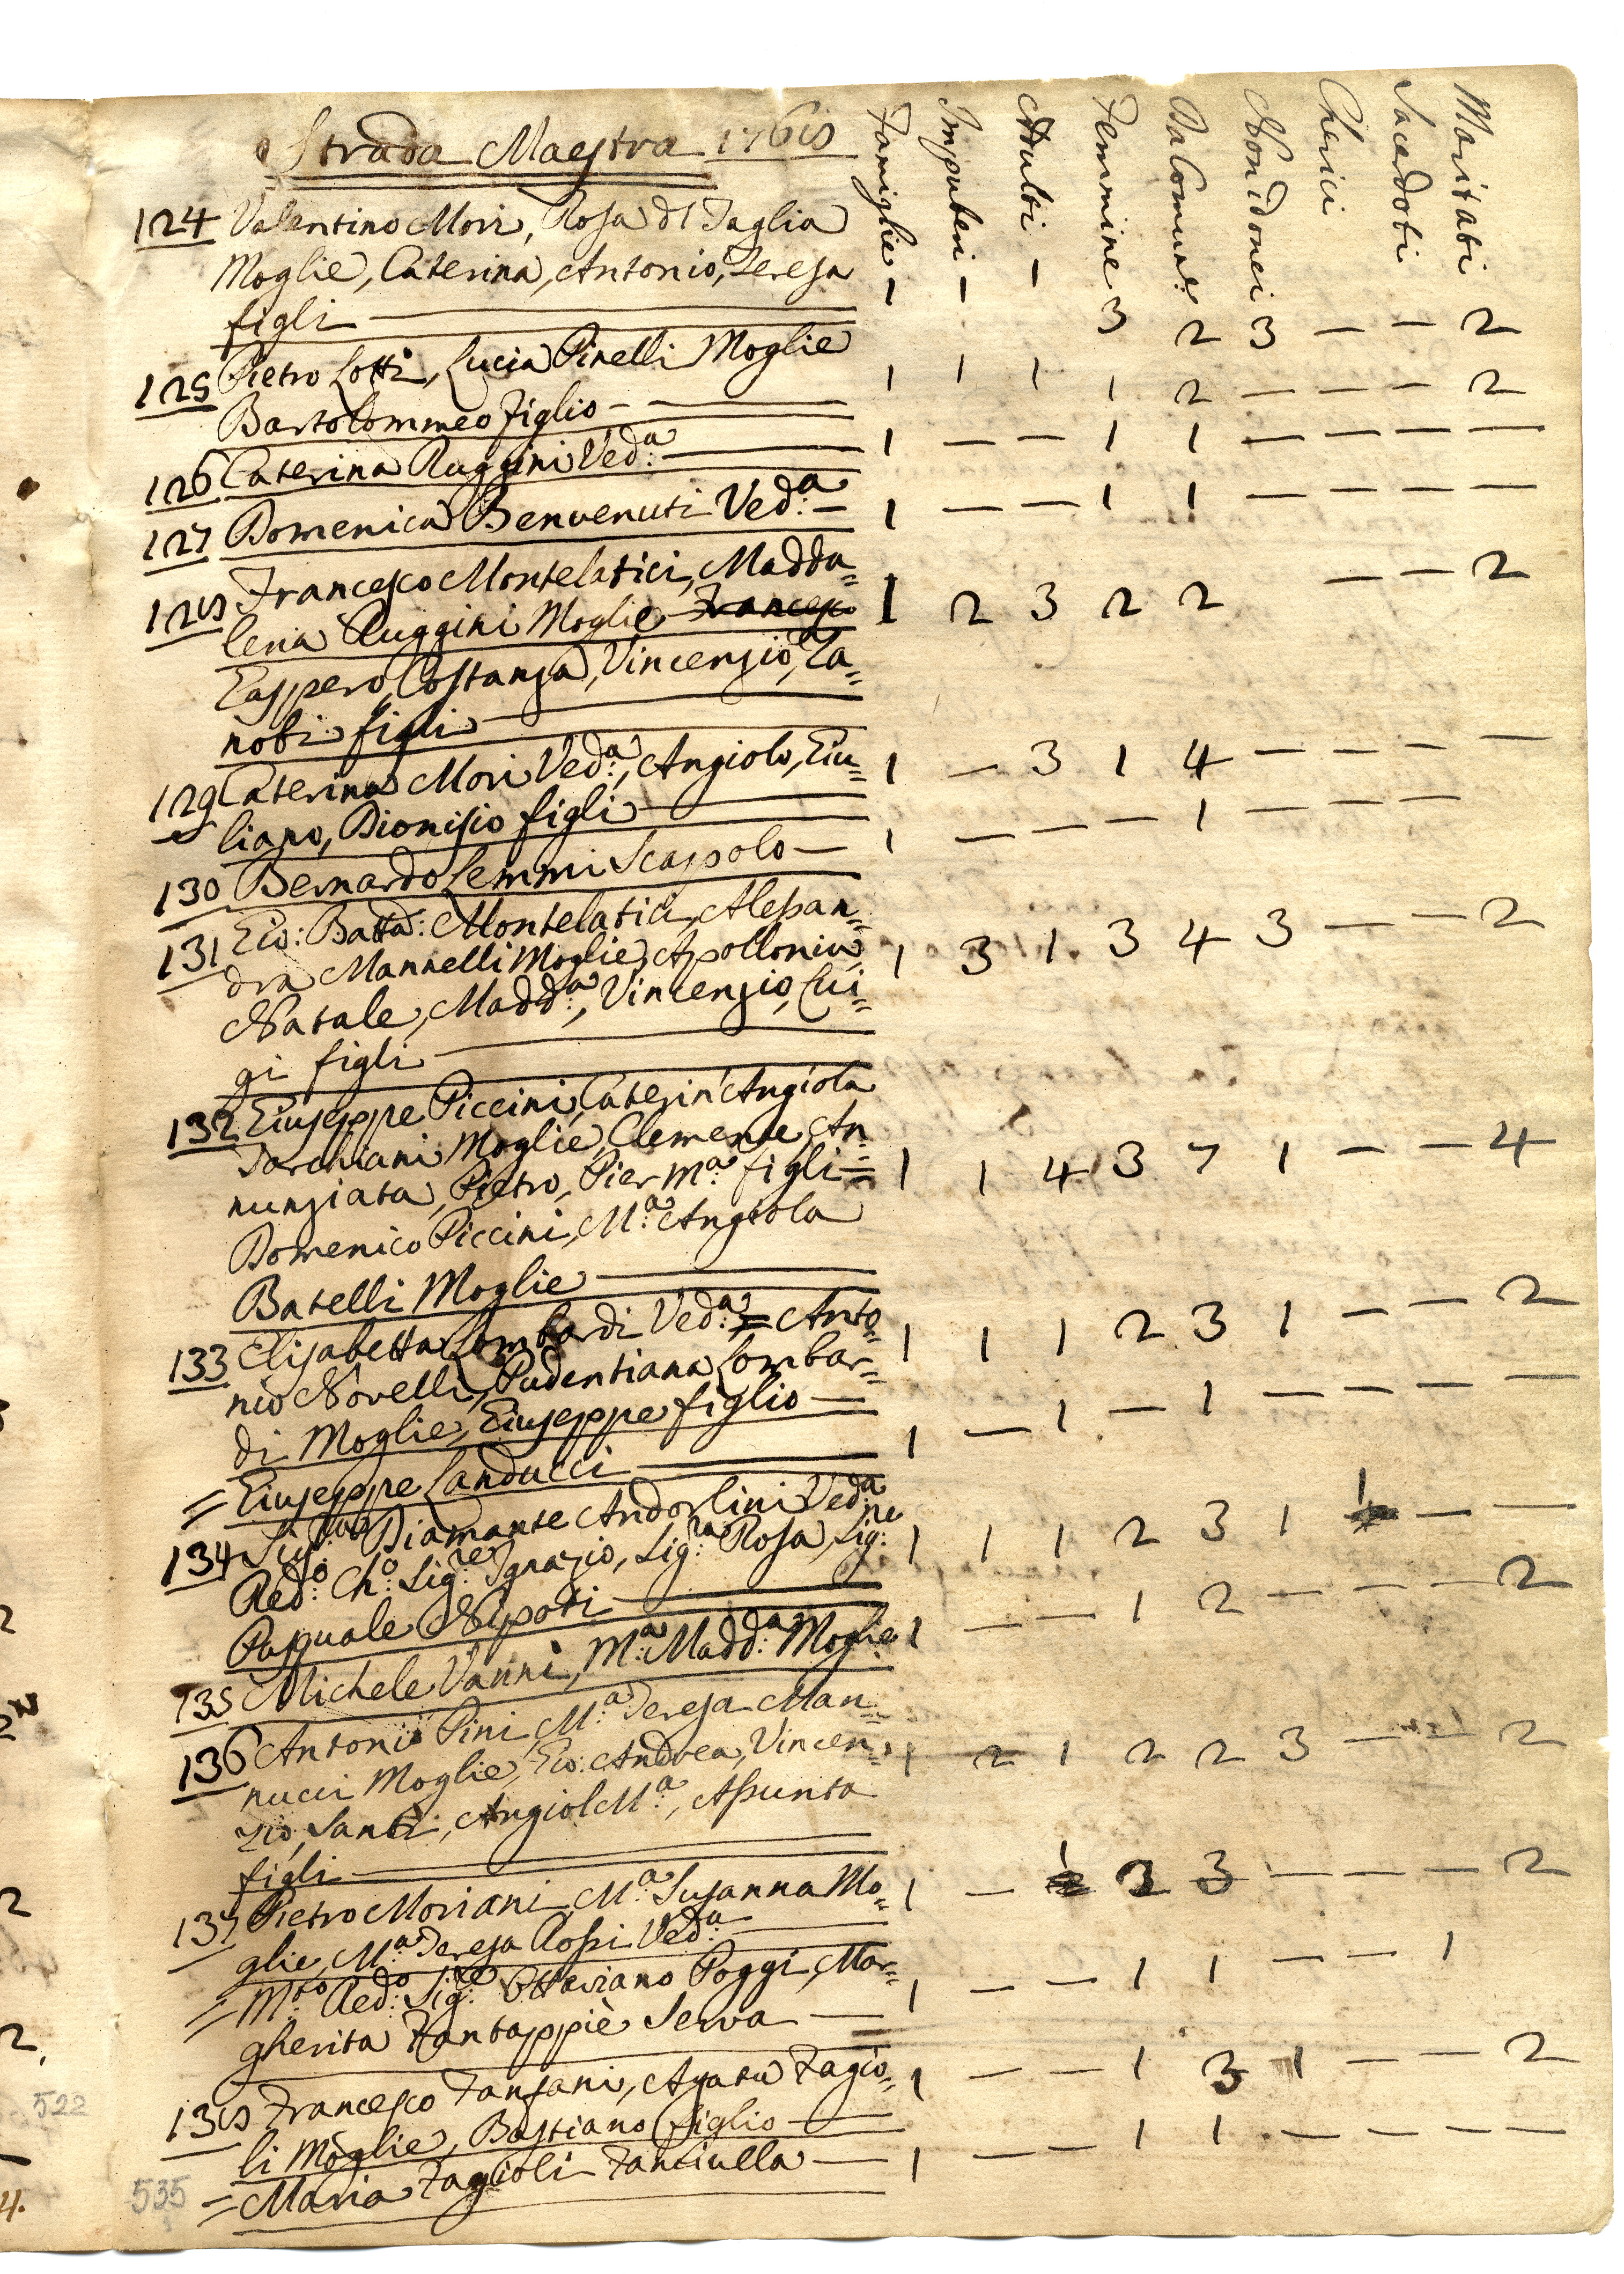 Strada Maestra 1768
Famiglie Impuberi Adulti Femmine Da Comun.e Non idonei Cherici Sacerdoti Maritati
124 Valentino Mori, Rosa del Taglia
Moglie, Caterina, Antonio, Teresa 1 1 1
figli 3 2 3 — — 2
125 Pietro Lotti, Lucia Pinelli Moglie
Bartolommeo figlio — 1 1 1 1 2 — — — 2
126 Caterina Ruggini Ved:a 1 — — 1 1 — — — —
127 Domenica Benvenuti Ved:a — 1 — — 1 1 — — — —
128 Francesco Montelatici, Madda=
lena Ruggini Moglie Francesco 1 2 3 2 2 — — 2
Gaspero, Costanza, Vincenzio, Za=
nobi figli
129 Caterina Mori Ved:a, Angiolo, Giu= 1 — 3 1 4 — — — —
liano, Dionisio figli
130 Bernardo Lemmi Scapolo — 1 — — — 1 — — —
131 Gio: Batta: Montelatici, Alessan=
dra Mannelli Moglie, Apollonia, 1 3 1 3 4 3 — — 2
Natale, Madd:a, Vincenzio, Lui=
gi figli
132 Giuseppe Piccini, Caterin'Angiola
Tarchiani Moglie, Clemente, An=
nunziata, Pietro, Pier M:a figli = 1 1 4 3 7 1 — — 4
Domenico Piccini, M:a Angiola
Batelli Moglie
133 Elisabetta Lombardi Ved:a = Anto=
nio Novelli, Pudentiana Lombar= 1 1 1 2 3 1 — — 2
di Moglie, Giuseppe figlio —
= Giuseppe Landucci 1 — 1 — 1 — — — —
134 Diamante Andorlini Ved:a
Red:o Ch:o Sig:re Ignazio, Sig:ra Rosa, Sig:re 1 1 1 2 3 1 1 — —
Pasquale Nipoti
135 Michele Vanni, M:a Madd:a Moglie 1 — — 1 2 — — — 2
136 Antonio Pini, M:a Teresa Man=
nucci Moglie, Gio: Andrea, Vincen= 1 2 1 2 2 3 — — 2
zio, Santi, Angiol M:a, Assunta
figli
137 Pietro Moriani, M:a Susanna Mo= 1 — 1 3 3 — — — 2
glie, M:a Teresa Rossi Ved:a
= M:to Red:o Sig:re Ottaviano Poggi, Mar=
gherita Fantappiè Serva — 1 — — 1 1 — — 1
138 Francesco Fanfani, Agata Fagio= 1 — — 1 3 1 — — 2
li Moglie, Bastiano figlio
= Maria Fagioli Fanciulla — 1 — — 1 1 — — — —
522
535